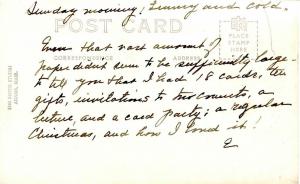 Sunday morning. Sunny and cold.
POST CARD
PLACE
STAMP
HERE
CORRESPONDENCE
ADDRESS
Even that vast amount of
paper didn't seem to be sufficiently large
to tell you that I had 18 cards, ten
gifts, invitations to two concerts, a
lecture, and a card party; a regular
Christmas, and how I loved it!
E